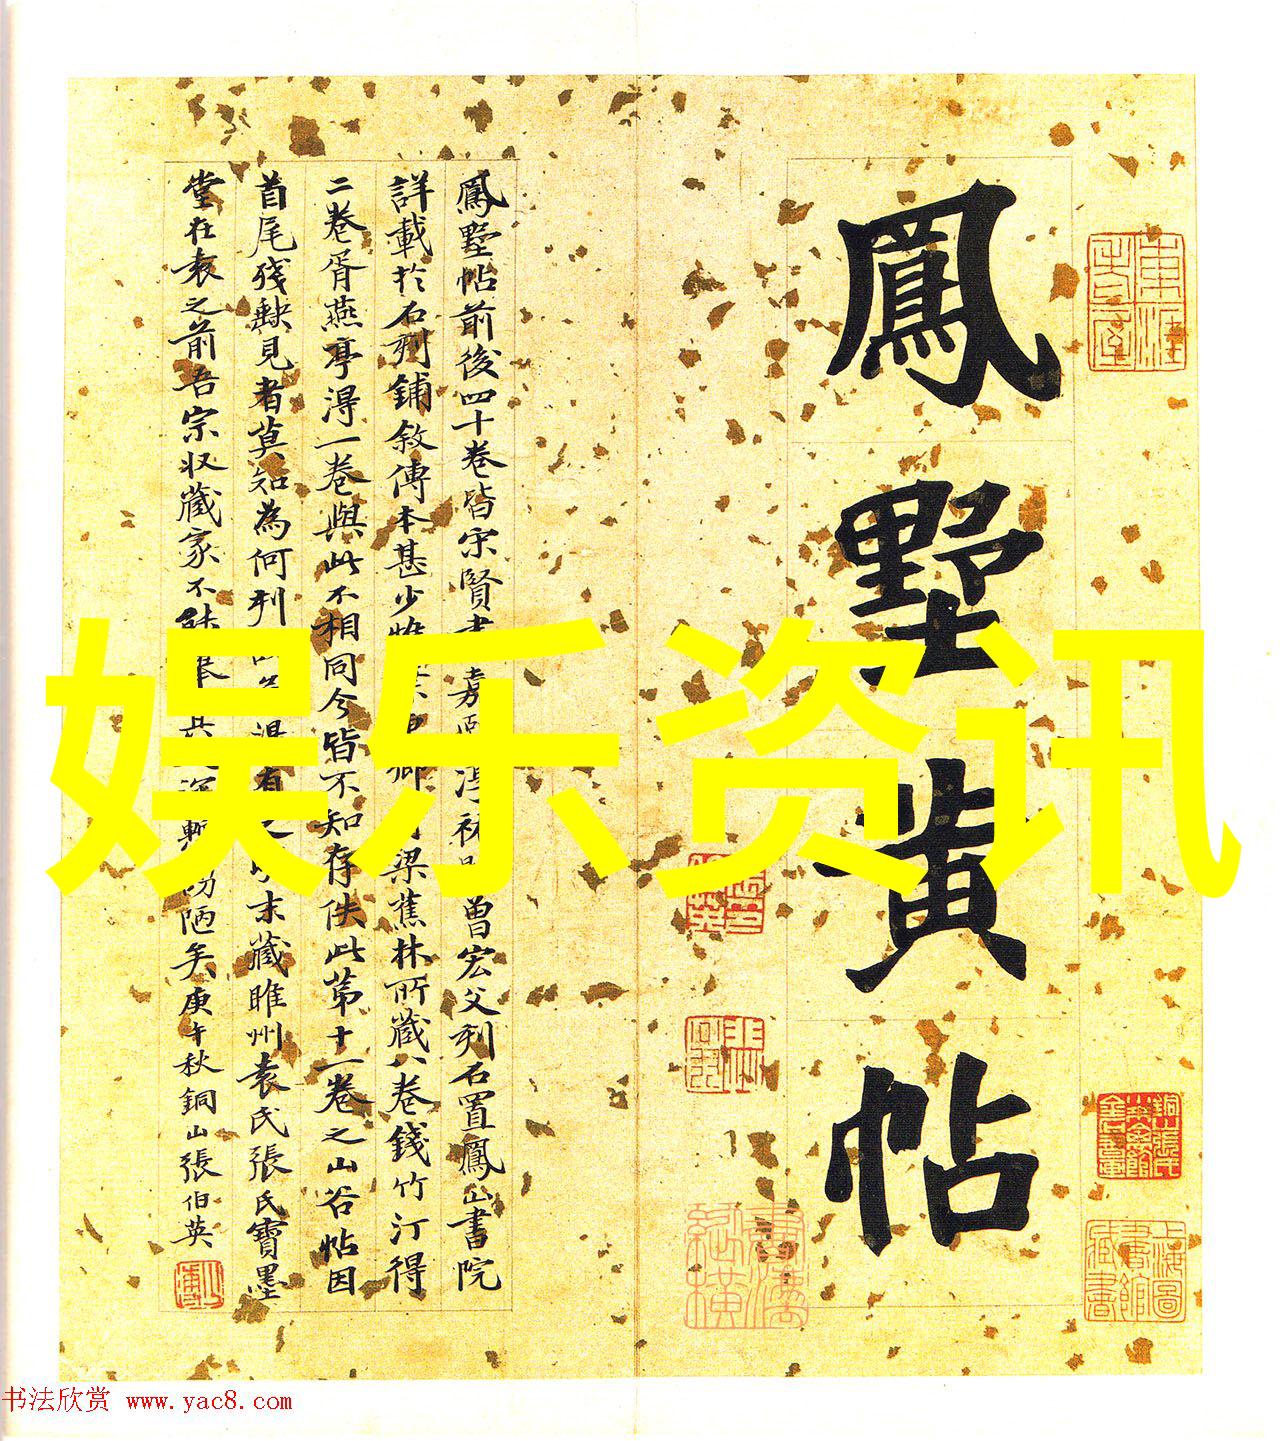 鳳墅黄帖
鳳墅帖前後四十卷皆宋賢書嘉熙淳祐曾宏父刻石置鳳山書院
詳載於石刻鋪敘傳本甚少梁蕉林所藏八卷錢竹汀得
二卷胥燕亭得一卷與此不相同今皆不知存佚此第十一卷之山谷帖因
首尾殘缺見者莫知為何刻末藏睢州袁氏張氏寶墨
堂在袁之前吾宗収藏家不陋矣庚午秋銅山張伯英
上海圖書館藏書
娱乐资讯
书法欣赏 www.yac8.com